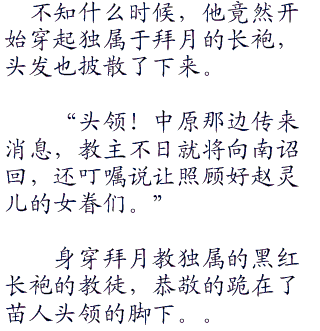 不知什么时候，他竟然开
始穿起独属于拜月的长袍，
头发也披散了下来。
“头领！中原那边传来
消息，教主不日就将向南诏
回，还叮嘱说让照顾好赵灵
儿的女眷们。”
身穿拜月教独属的黑红
长袍的教徒，恭敬的跪在了
苗人头领的脚下。。